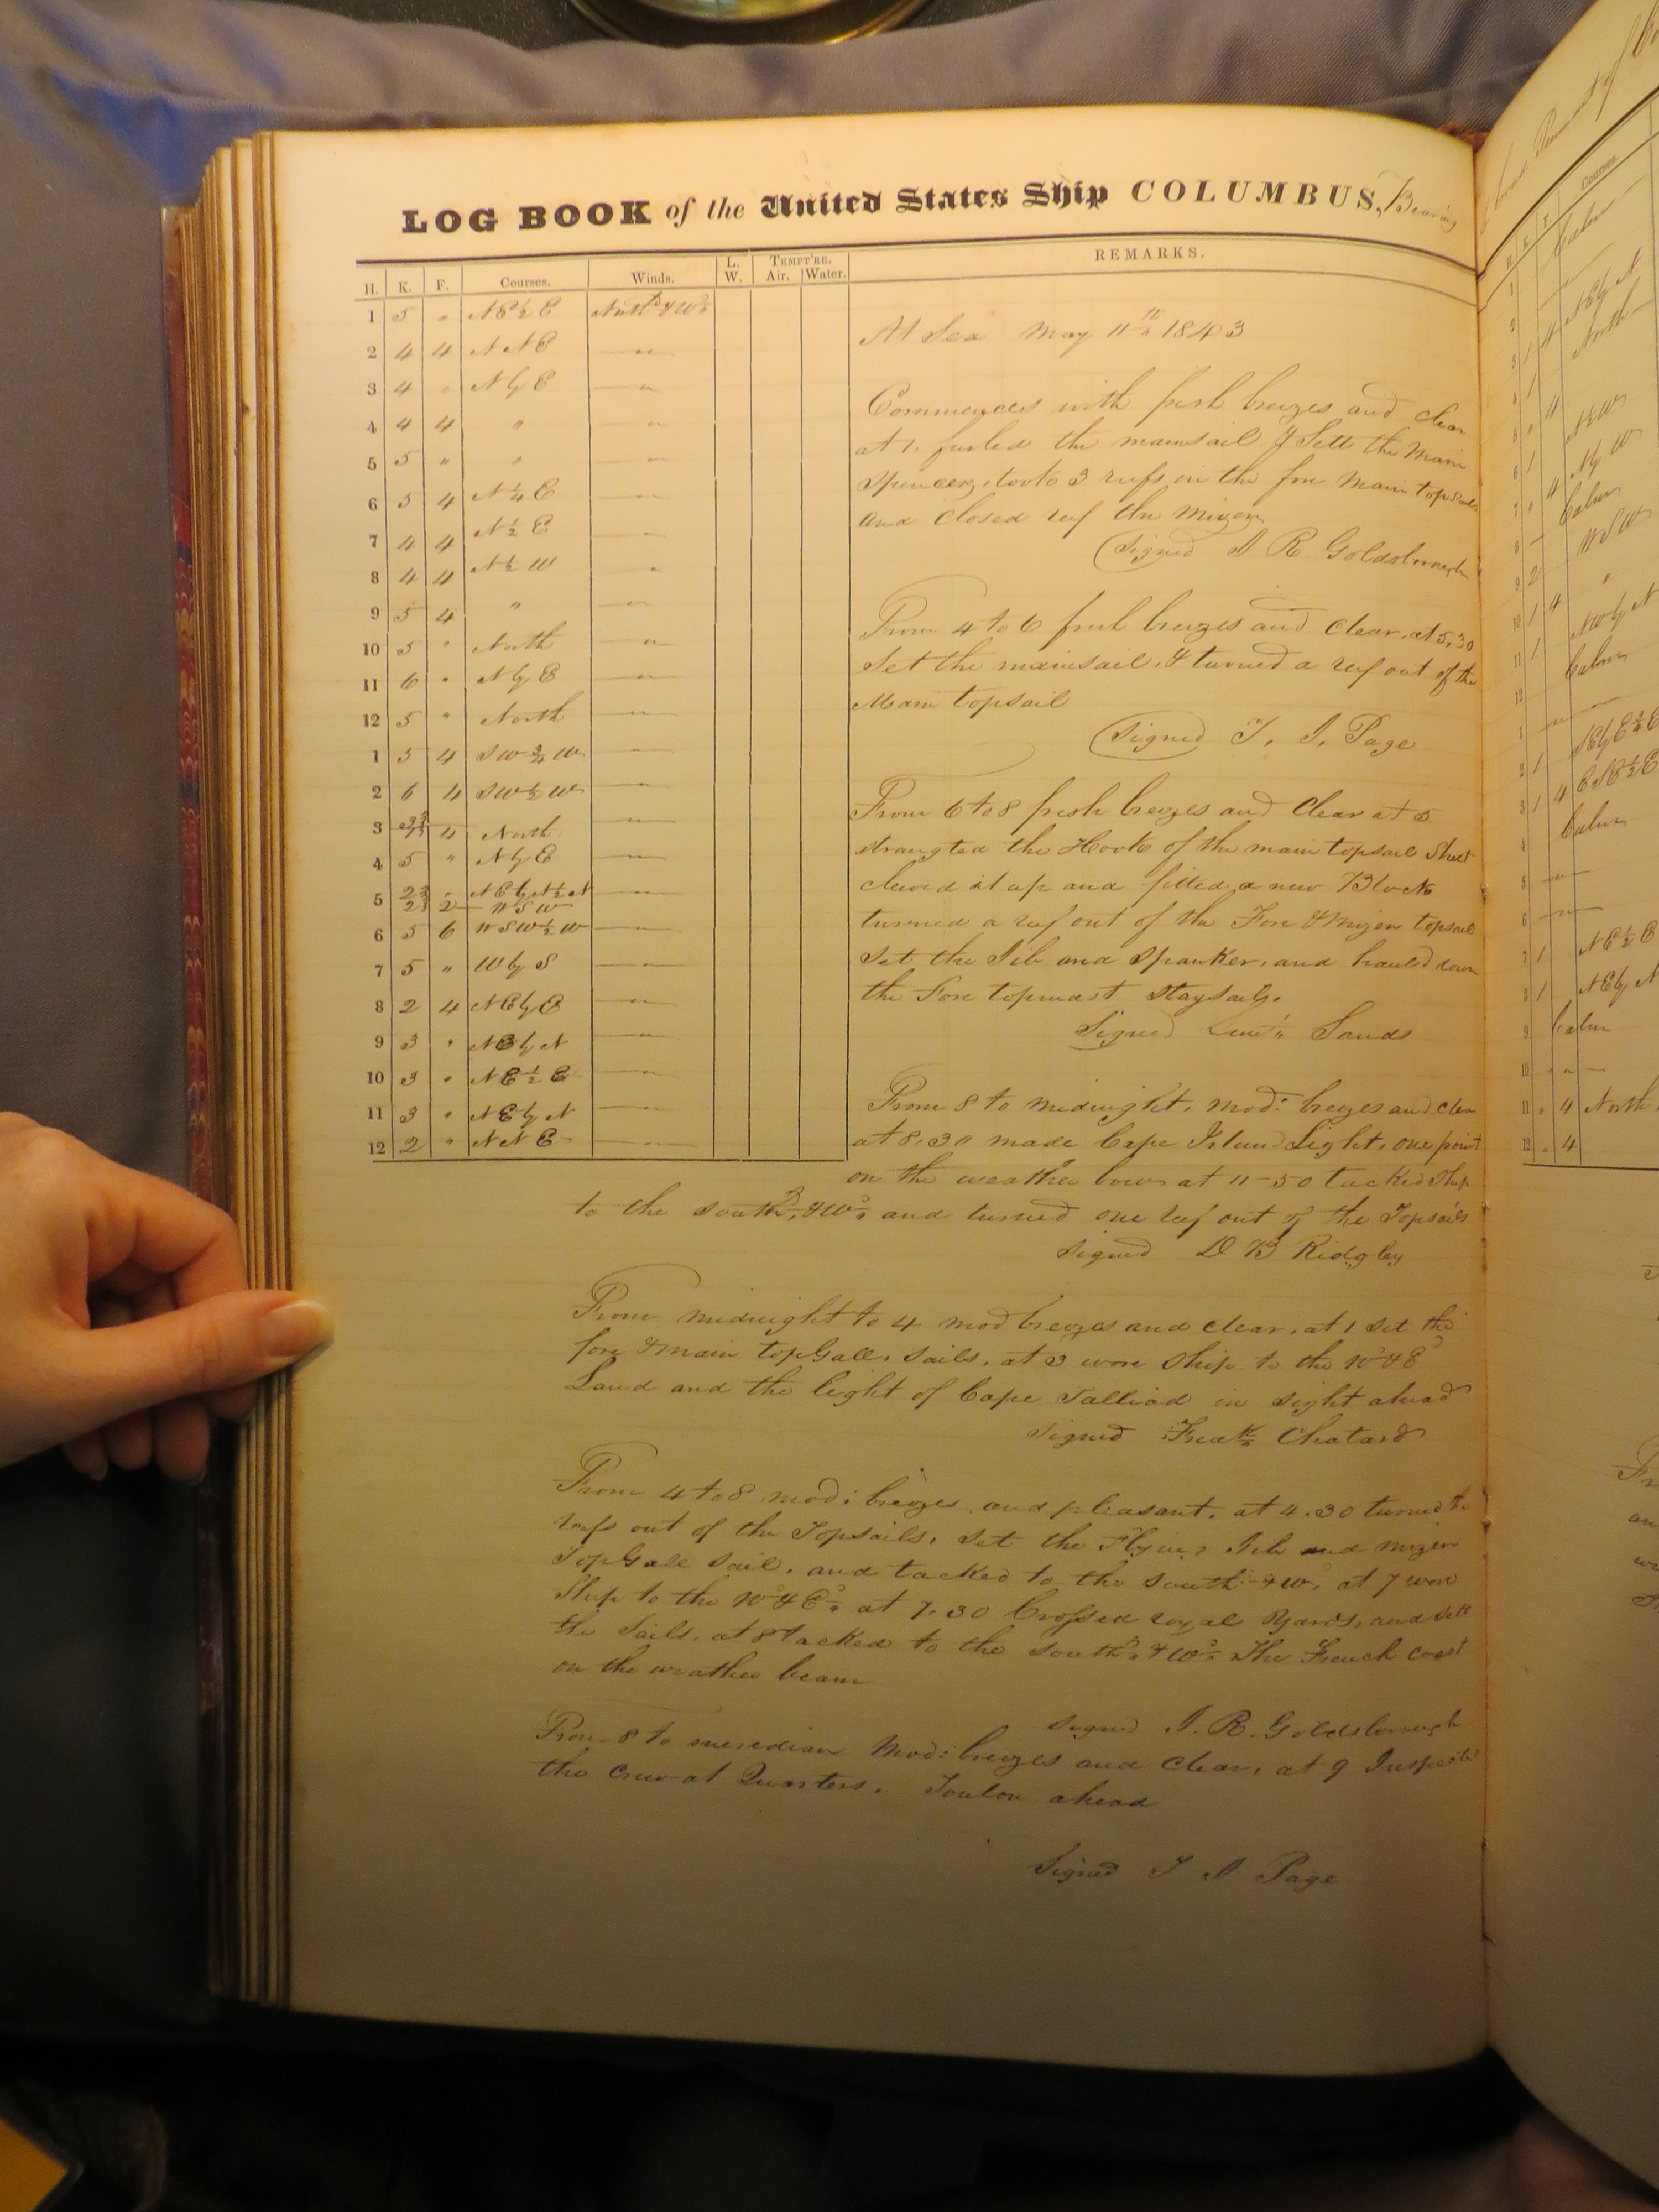 LOG BOOK of the United States Ship COLUMBUS, Bearing
H. K. F. Courses. Winds. L. W. TEMPT'RE. Air. Water. REMARKS.
1 5 " NE½E North'd & W'd
2 4 4 NNE "
3 4 " N by E "
4 4 4 " "
5 5 " " "
6 5 4 N¼E "
7 4 4 N½E "
8 4 4 N½W "
9 5 4 " "
10 5 " North "
11 6 " N by E "
12 5 " North "
1 5 4 SW¾W "
2 6 4 SW½W "
3 4 North "
4 5 " N by E "
5 23 " NE by N½N "
23 2 WSW
6 5 6 WSW½W "
7 5 " W by S "
8 2 4 NE by E "
9 3 " NE by N "
10 3 " NE½E "
11 3 " NE by N "
12 2 " NNE "
At Sea May 11th 1843
Commences with fresh breezes and clear
at 1. furled the mainsail & Sett the Main
Spencer, took 3 reefs in the fore Main topsails
and closed reef the mizen
(Signed J R Goldsborough
From 4 to 6 fresh breezes and clear. at 5.30
Set the mainsail, & turned a reef out of the
Main topsail
(Signed T. J. Page
From 6 to 8 fresh breezes and Clear at 5
strangted the Hook of the main topsail Sheet
clewed it up and fitted a new Block
turned a reef out of the Fore & Mizen topsail
Set the Jib and Spanker, and hauled down
the Fore topmast Staysail.
Signed Sands
From 8 to midnight. mod: breezes and clear
at 8.30 made Cape Island Light, one point
on the weather bow at 11-50 tacked Ship
to the South'd & W'd and turned one reef out of the Topsails
Signed D B Ridgley
From midnight to 4 mod breezes and clear, at 1 set the
fore & main topGall. Sails. at 3 wore Ship to the N'd & E'd
Land and the light of Cape Talliad in sight ahead
Signed Fredk Chatard
From 4 to 8 mod: breezes and pleasant. at 4.30 turned the
reefs out of the Topsails, Set the Flying Jib and mizen
TopGall sail. and tacked to the South'd & W'd at 7 wore
Ship to the N'd & E'd at 7.30 Crossed royal Yards, and sett
the Sails. at 8 tacked to the South'd & W'd The French coast
on the weather beam
Signed J. R. Goldsborough
From 8 to meredian Mod: breezes and Clear, at 9 Inspected
the crew at Quarters. Toulon ahead
Signed T J Page
Courses.
Calm
NE by N
North
N½W
N by W
Calm
WSW
NW by N
Calm
SE by E½E
ESE½E
Calm
NE½E
NE by N
Calm
11 " 4 North
12 " 4